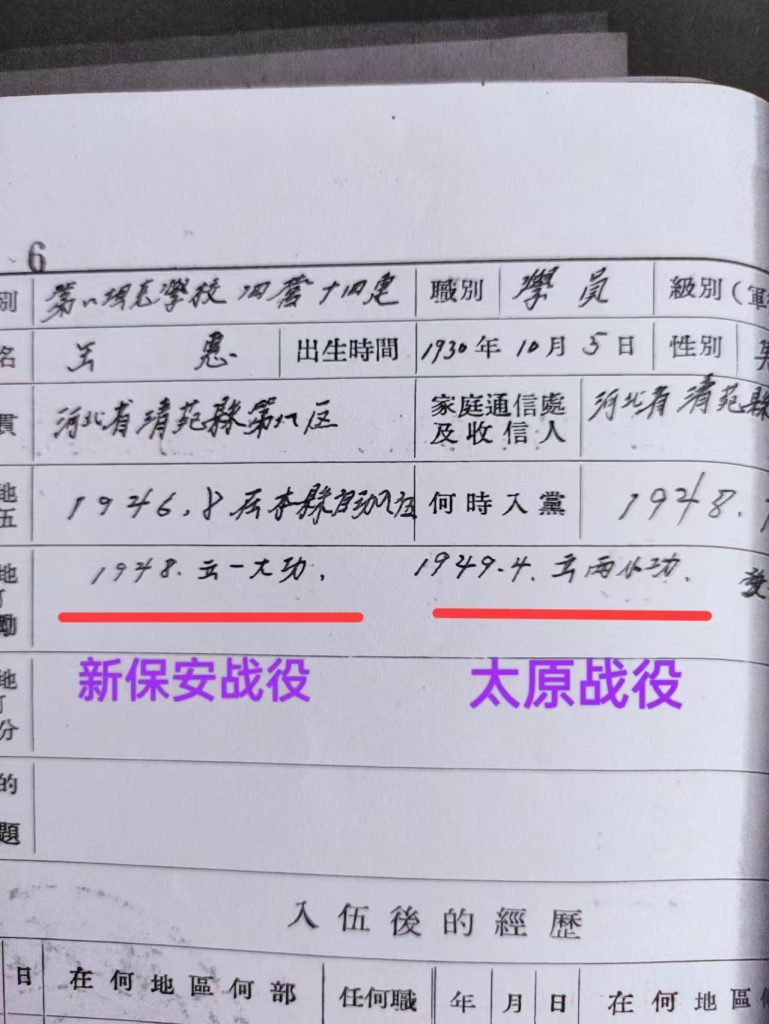 6
别 第八預長學校四營十四連 職別 學員 級別(軍
名 王惠 出生時間 1930年10月5日 性別 男
貫 河北省清苑縣第八区 家庭通信處及收信人 河北省清苑縣
地 伍 1946.8在本縣自动入伍 何時入黨 1948.
地 勵 1948.立一大功. 1949.4.立兩小功.
新保安战役 太原战役
地 分
的
題
入伍後的經歷
日 在何地區何部 任何職 年 月 日 在何地區何